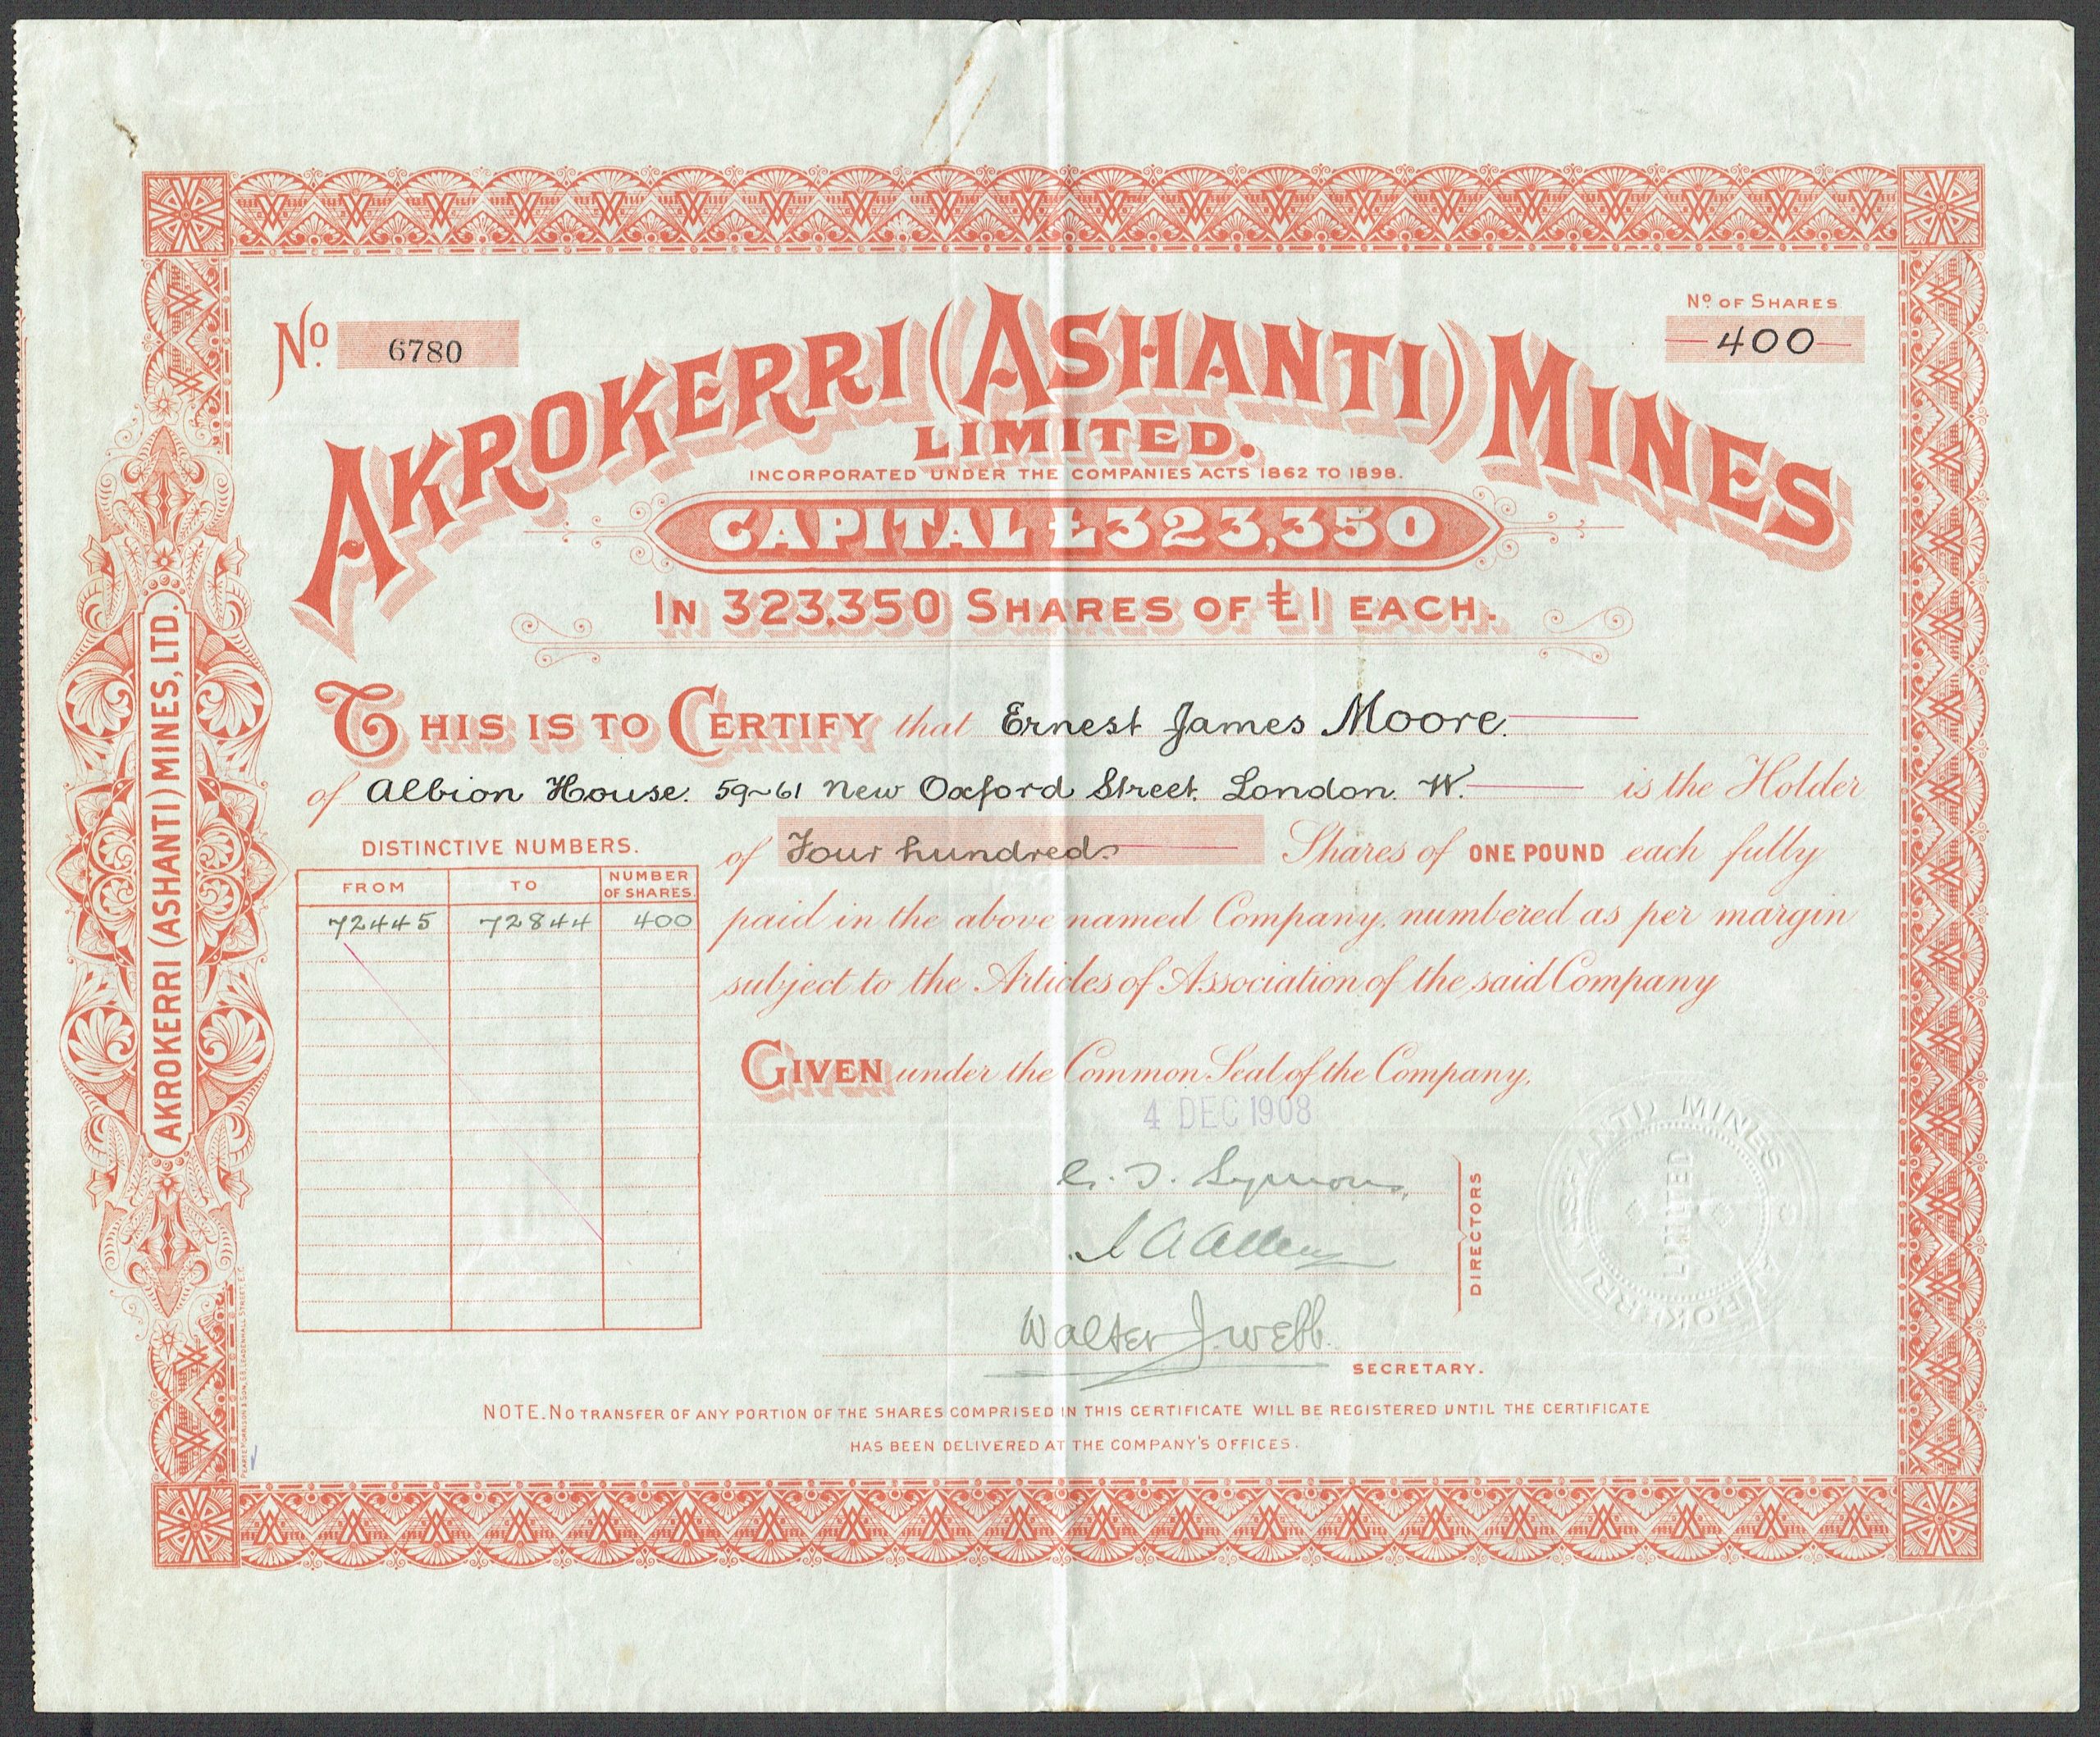 No. 6780
No. OF SHARES
400
AKROKERRI (ASHANTI) MINES
LIMITED.
INCORPORATED UNDER THE COMPANIES ACTS 1862 TO 1898.
CAPITAL £323,350
IN 323,350 SHARES OF £1 EACH.
THIS IS TO CERTIFY that Ernest James Moore.
of Albion House. 59~61 New Oxford Street. London. W. is the Holder
of Four hundred Shares of ONE POUND each fully
paid in the above named Company, numbered as per margin
subject to the Articles of Association of the said Company
DISTINCTIVE NUMBERS.
FROM TO NUMBER OF SHARES.
72445 72844 400
GIVEN under the Common Seal of the Company,
4 DEC 1908
Symons
A Allen
DIRECTORS
Walter J. Webb.
SECRETARY.
NOTE. NO TRANSFER OF ANY PORTION OF THE SHARES COMPRISED IN THIS CERTIFICATE WILL BE REGISTERED UNTIL THE CERTIFICATE
HAS BEEN DELIVERED AT THE COMPANY'S OFFICES.
AKROKERRI (ASHANTI) MINES, LTD.
AKROKERRI (ASHANTI) MINES
LIMITED
PEARSE MORRISON & SON, 68, LEADENHALL STREET, E.C.